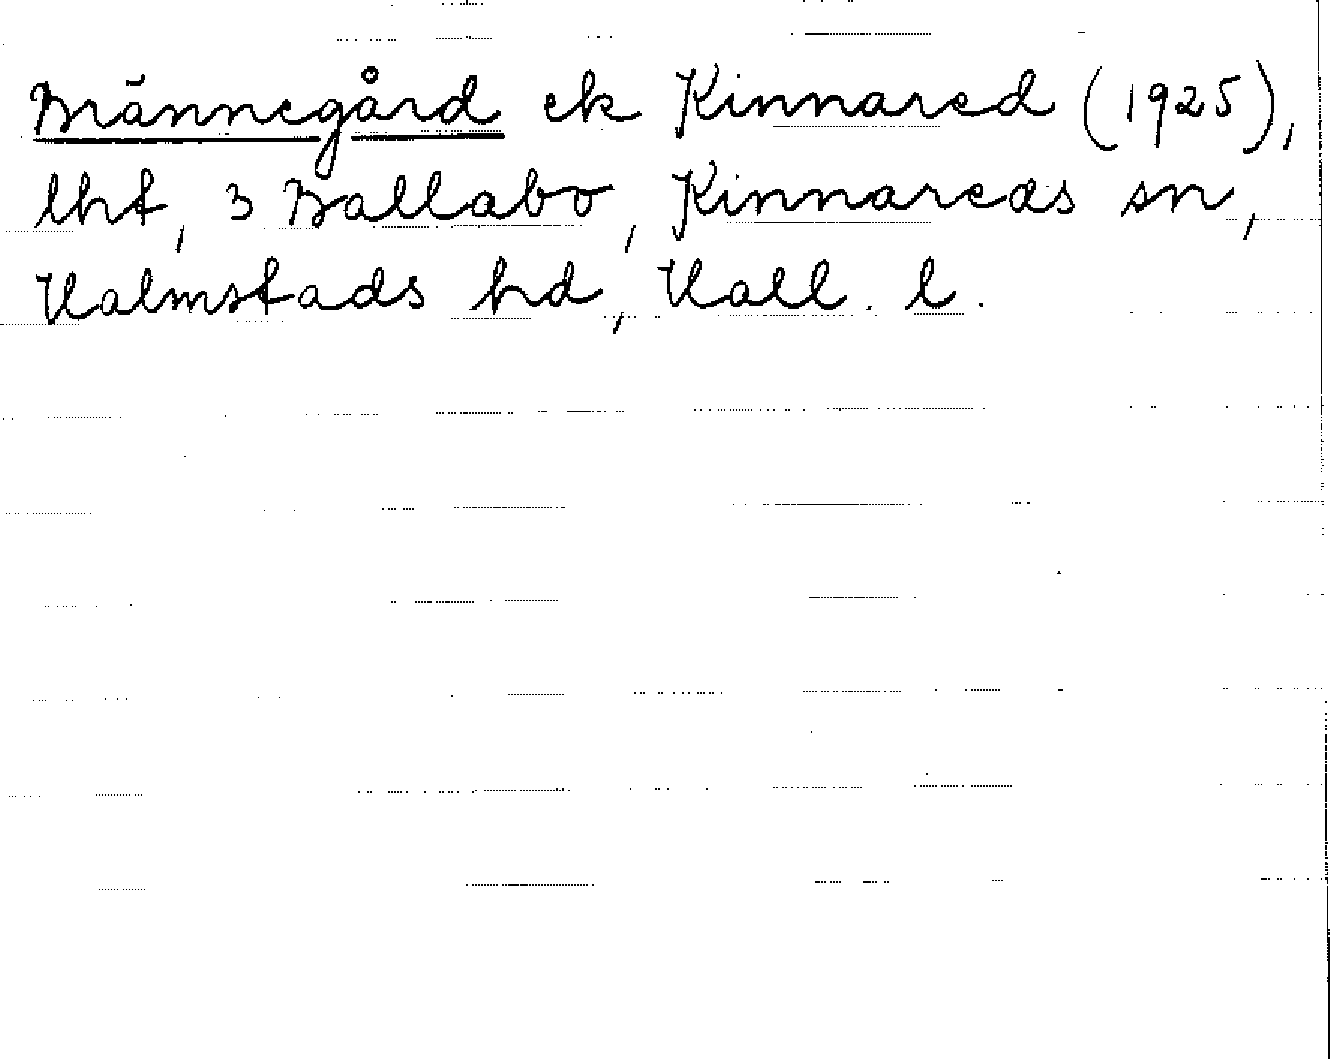 Brännegård ek Kinnared (1925),
lht, 3 Ballabo, Kinnareds sn,
Halmstads hd, Hall. l.